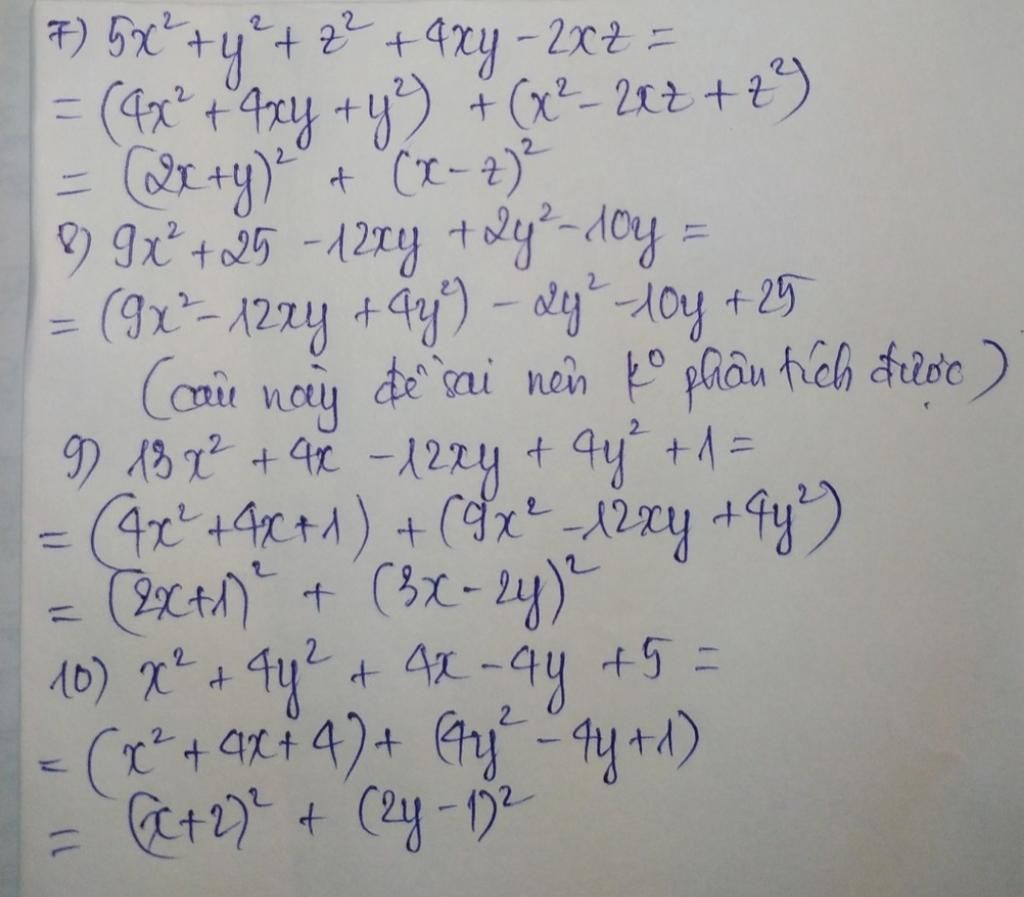 7) 5x² + y² + z² + 4xy - 2xz =
= (4x² + 4xy + y²) + (x² - 2xz + z²)
= (2x+y)² + (x - z)²
8) 9x² + 25 - 12xy + 2y² - 10y =
= (9x² - 12xy + 4y²) - 2y² - 10y + 25
(câu này đề sai nên k⁰ phân tích được)
9) 13x² + 4x - 12xy + 4y² + 1 =
= (4x² + 4x + 1) + (9x² - 12xy + 4y²)
= (2x+1)² + (3x - 2y)²
10) x² + 4y² + 4x - 4y + 5 =
= (x² + 4x + 4) + (4y² - 4y + 1)
= (x+2)² + (2y - 1)²